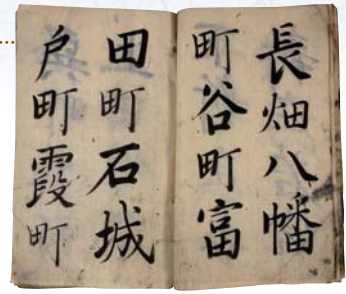 長畑八幡
町谷町富
田町石城
戸町霞町